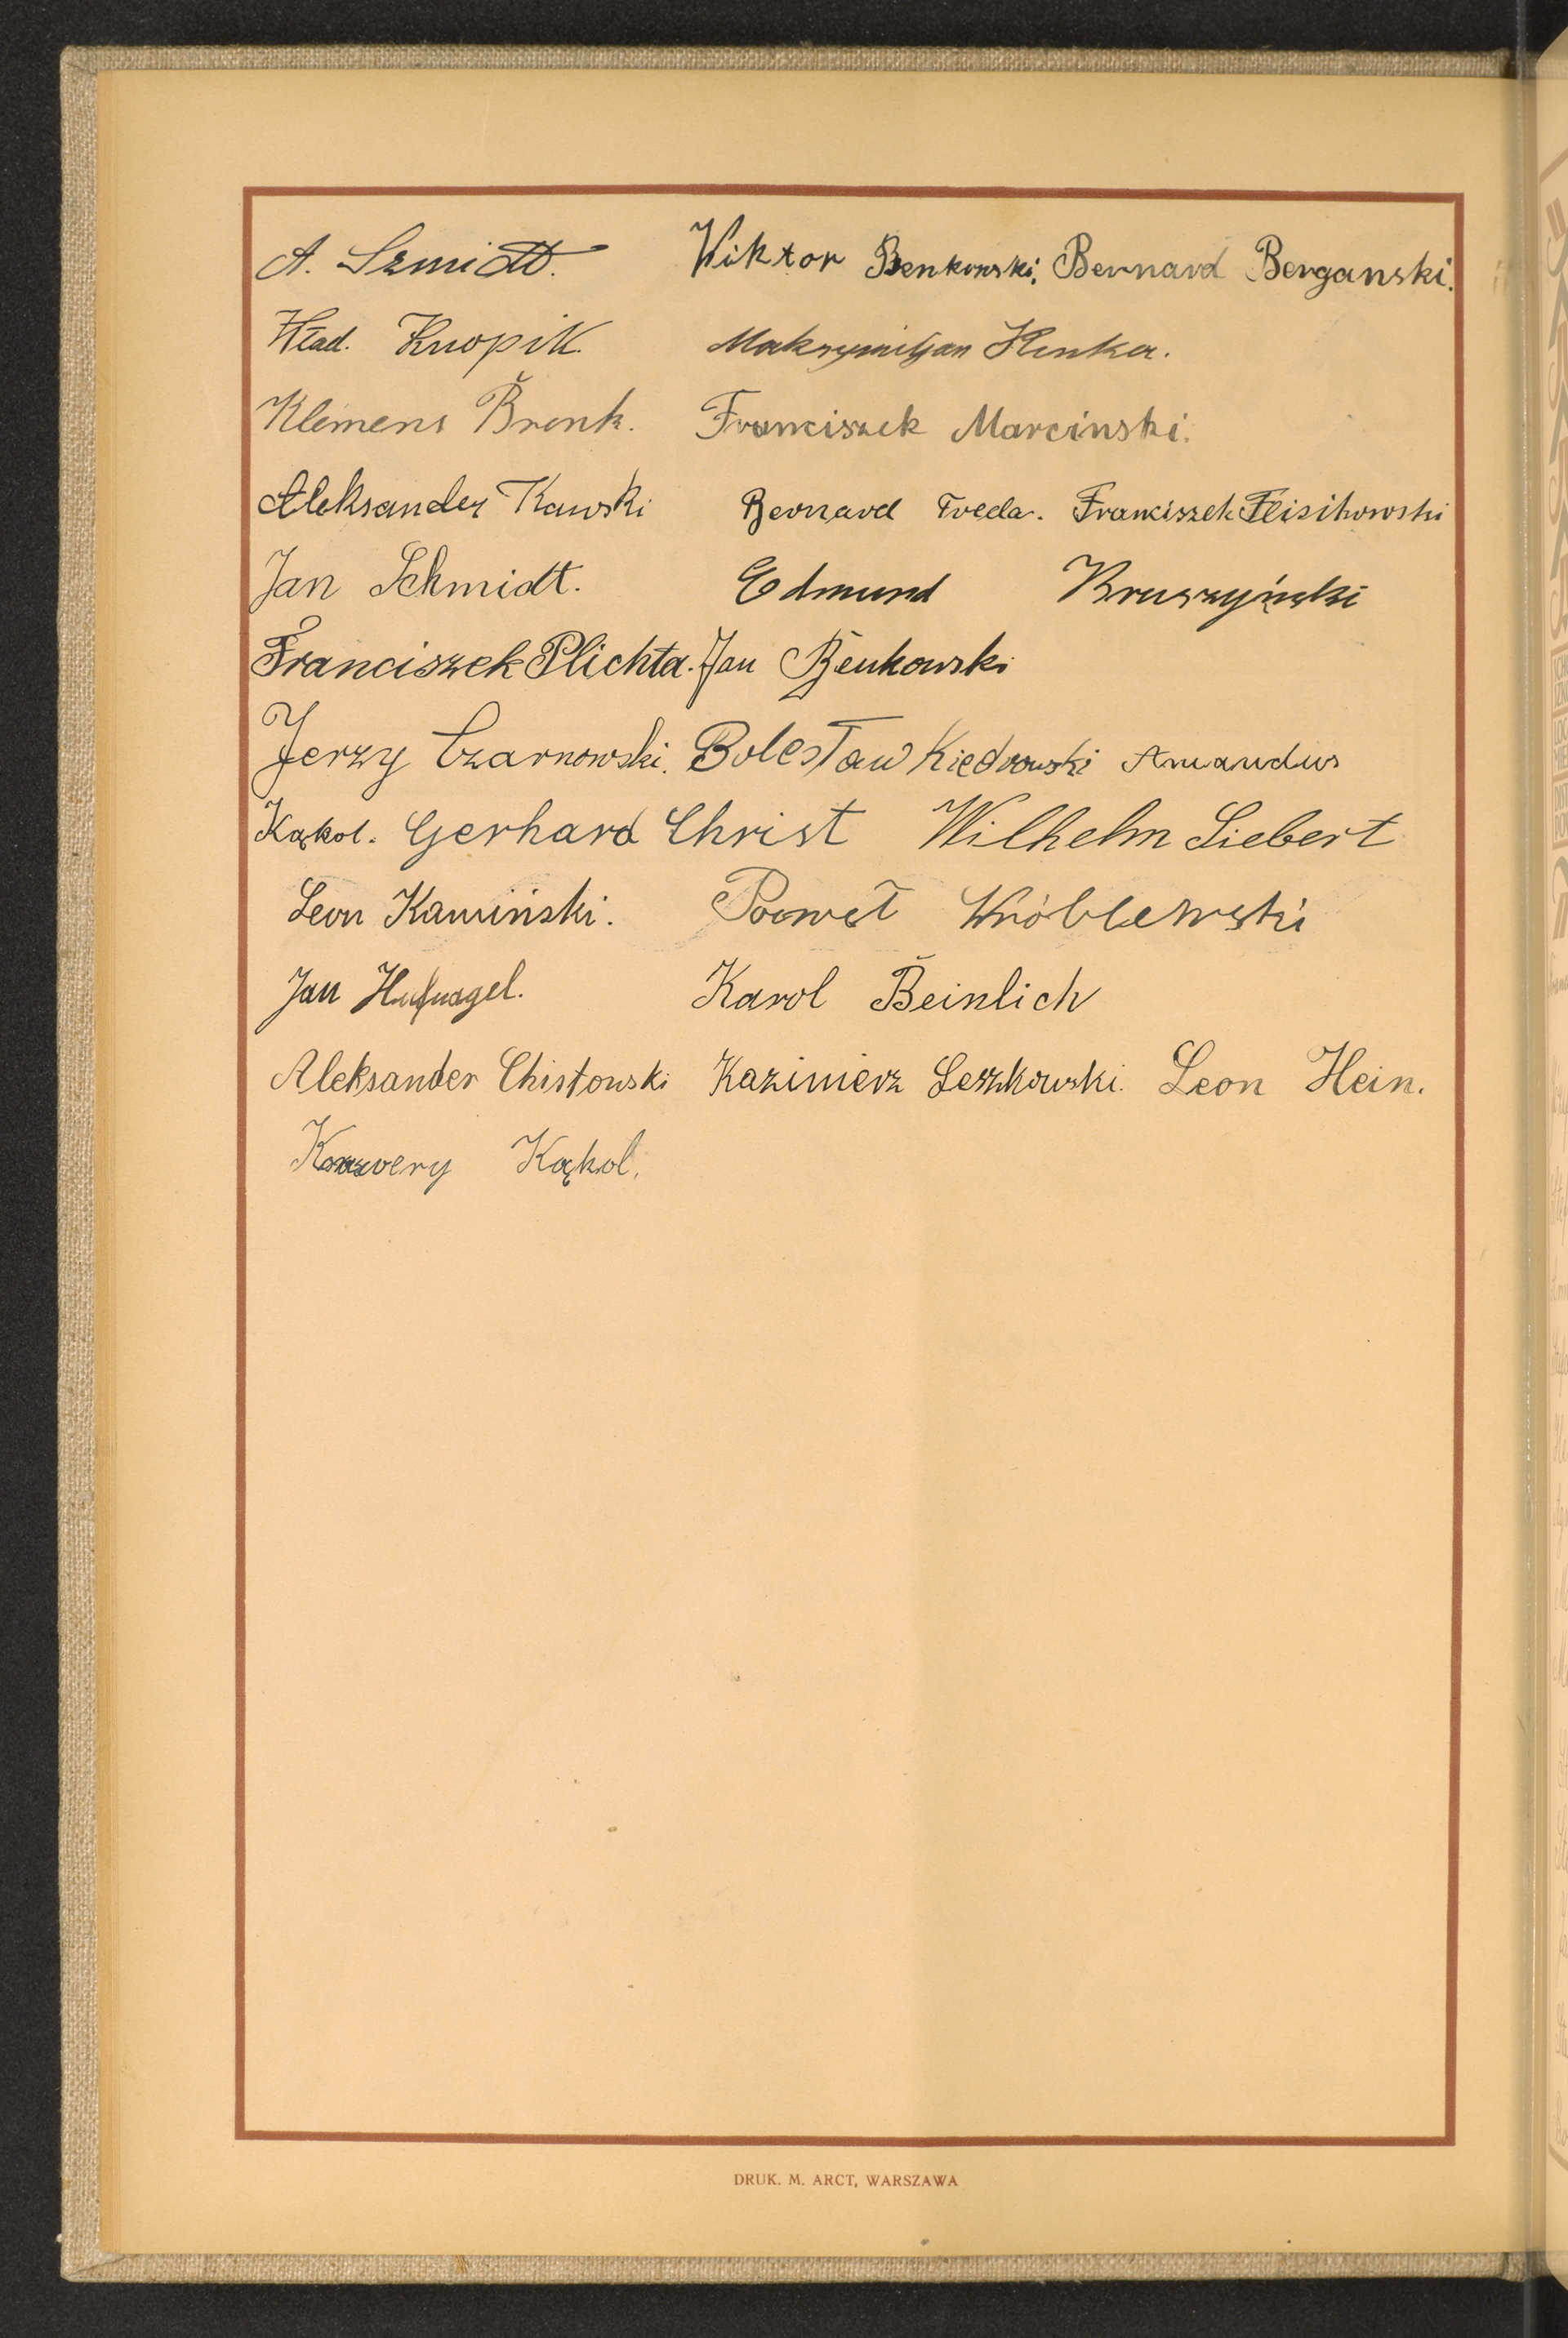 A. Szmidt. Wiktor Benkowski, Bernard Berganski.
Wład. Knopik. Maksymiljan Henka.
Klemens Bronk. Franciszek Marcinski.
Aleksander Kawski Bernard Treda. Franciszek Flisikowski
Jan Schmidt. Edmund Kruszyński
Franciszek Plichta. Jan Benkowski
Jerzy Czarnowski. Bolesław Kiedrowski Amandus
Kąkol. Gerhard Christ Wilhelm Siebert
Leon Kamiński. Paweł Wróblewski
Jan Hufnagel. Karol Beinlich
Aleksander Chistowski Kazimierz Leszkowski. Leon Hein.
Ksawery Kąkol.
DRUK. M. ARCT, WARSZAWA